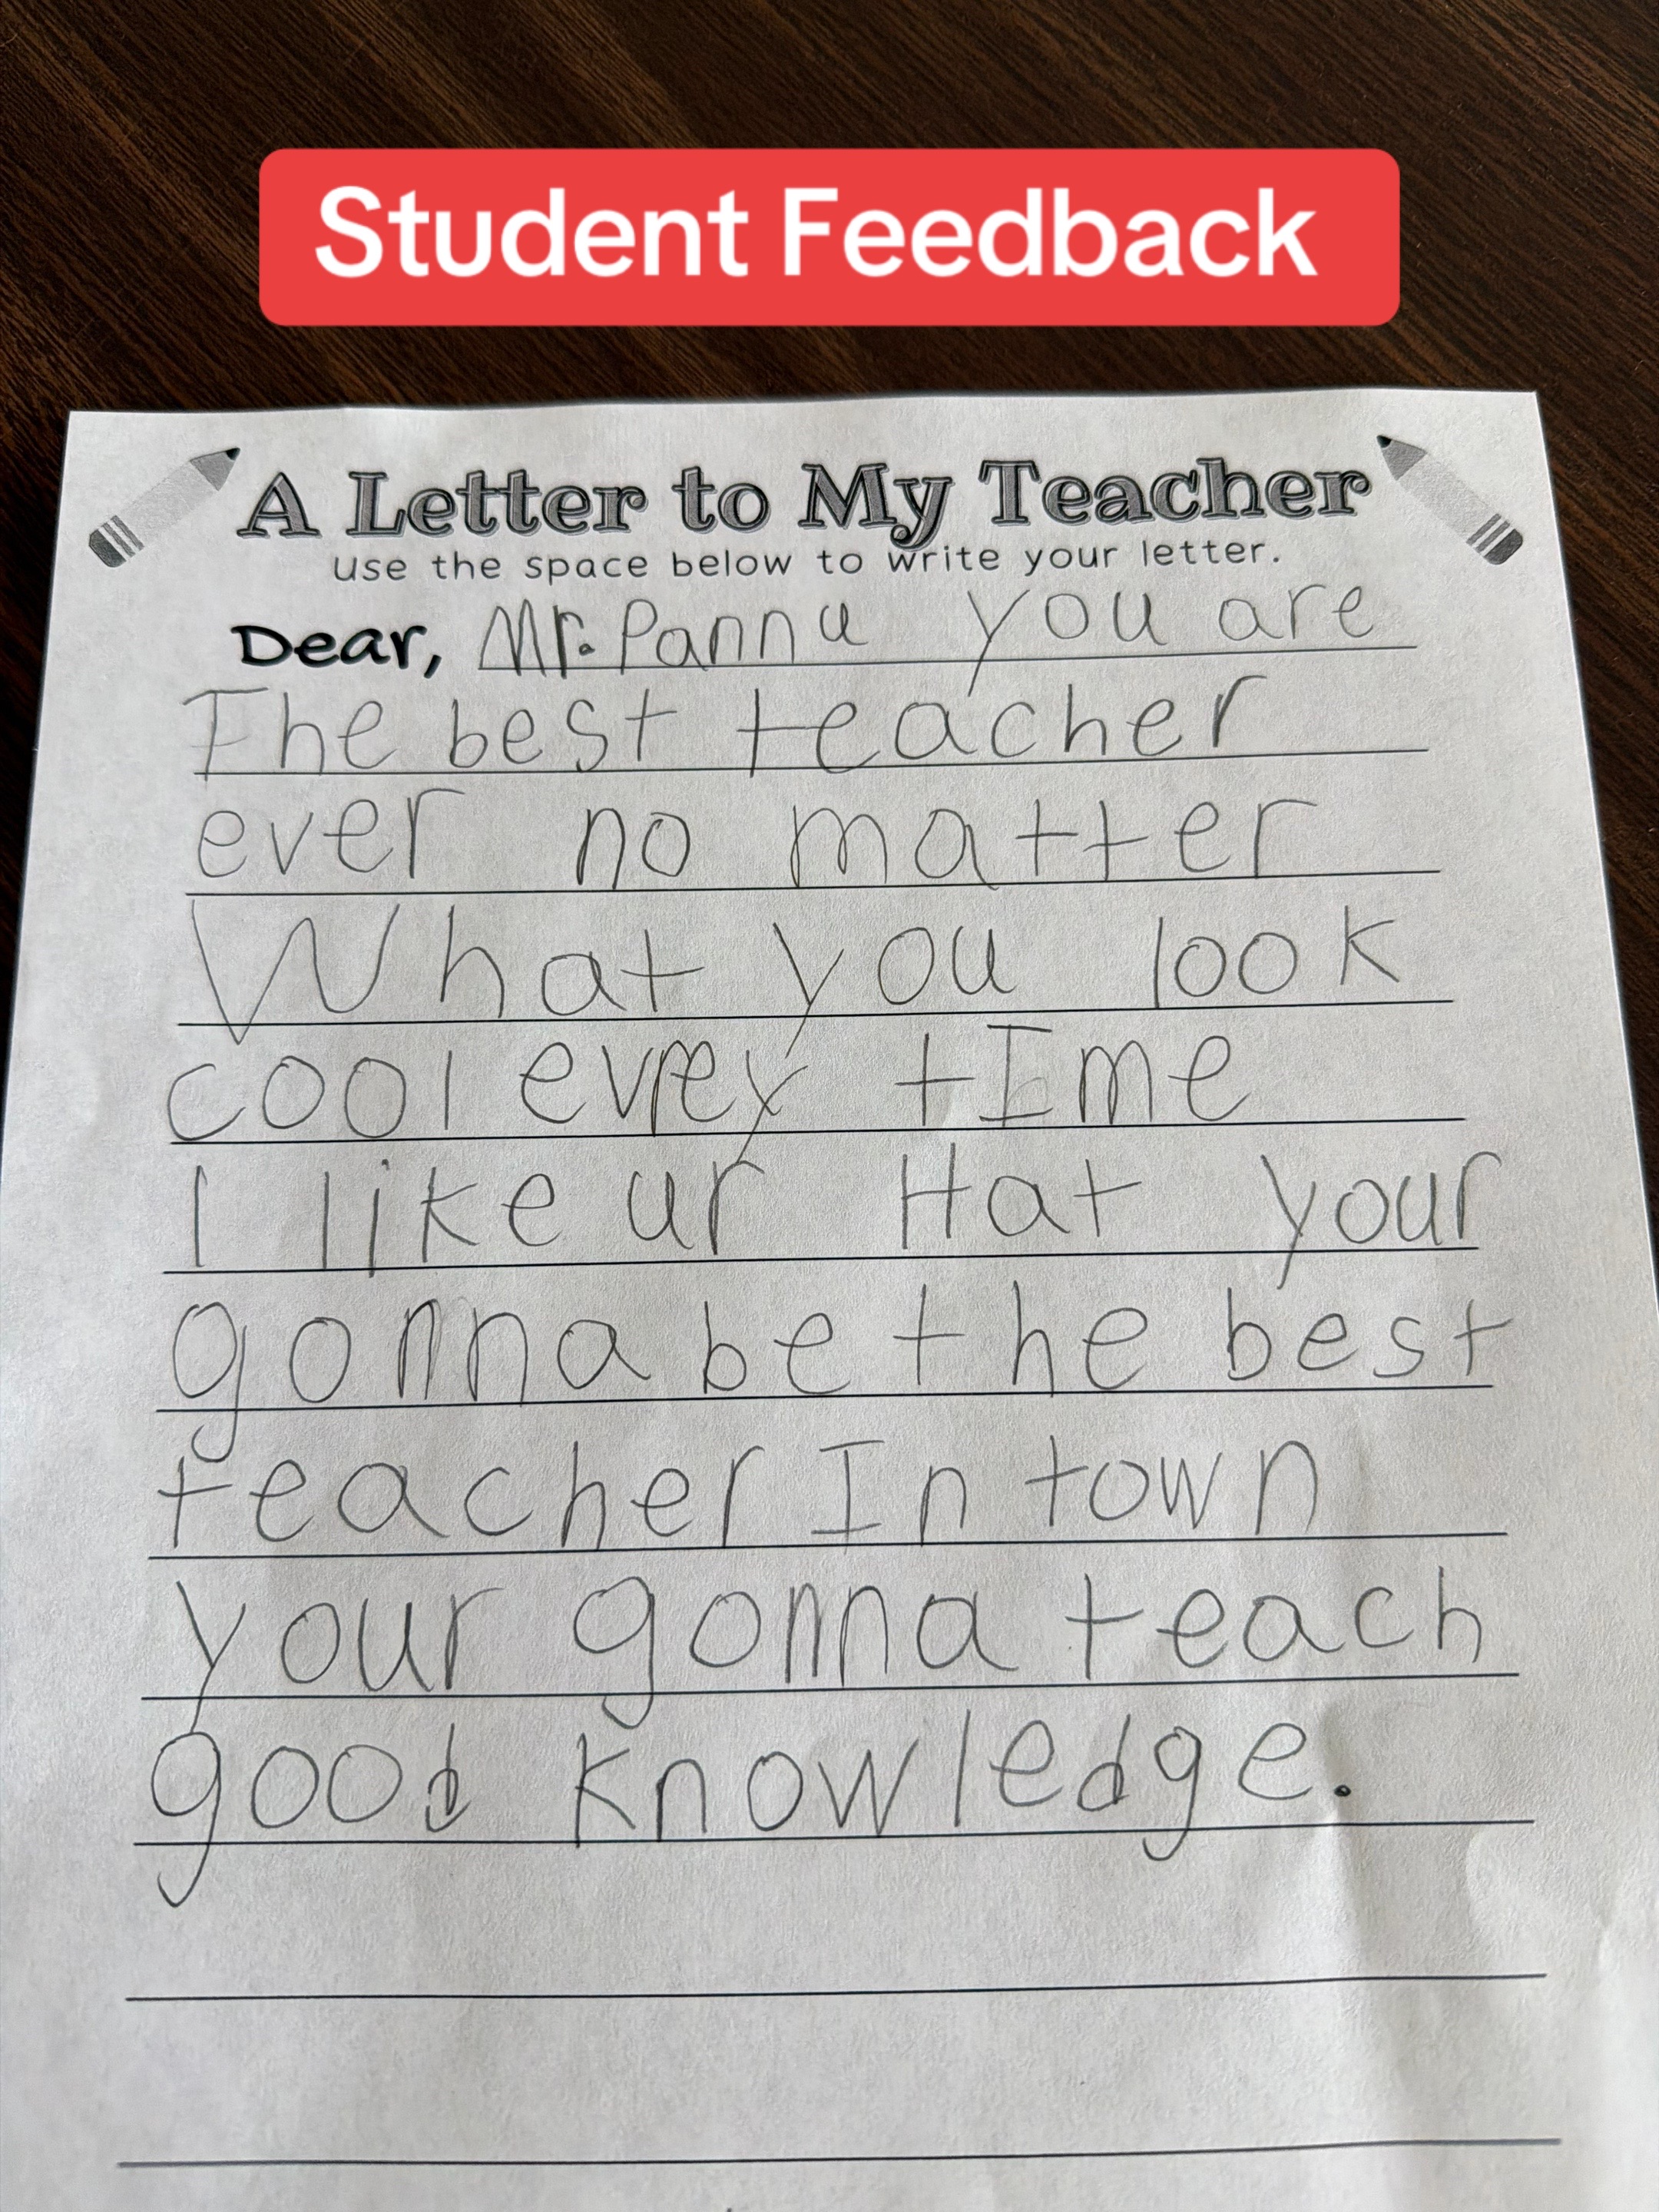 Student Feedback
A Letter to My Teacher
use the space below to write your letter.
Dear, Mr. Pannu you are
The best teacher
ever no matter
What you look
cool evrey tIme
I like ur Hat your
gonna be the best
teacher In town
your gonna teach
good knowledge.